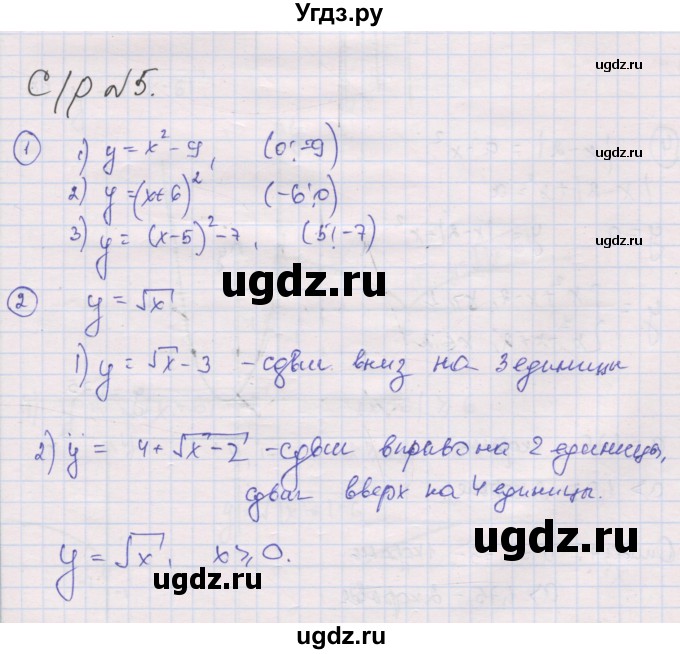 Угдз.ру
ugdz.ru
С/р №5.
① 1) y = x² - 9, (0; -9)
ugdz.ru
2) y = (x+6)² (-6; 0)
3) y = (x-5)² - 7, (5; -7)
ugdz.ru
② y = √x
1) y = √x - 3 - сдвиг вниз на 3 единицы
2) y = 4 + √x-2 - сдвиг вправо на 2 единицы,
сдвиг вверх на 4 единицы.
y = √x, x ≥ 0.
ugdz.ru
ugdz.ru
ugdz.ru